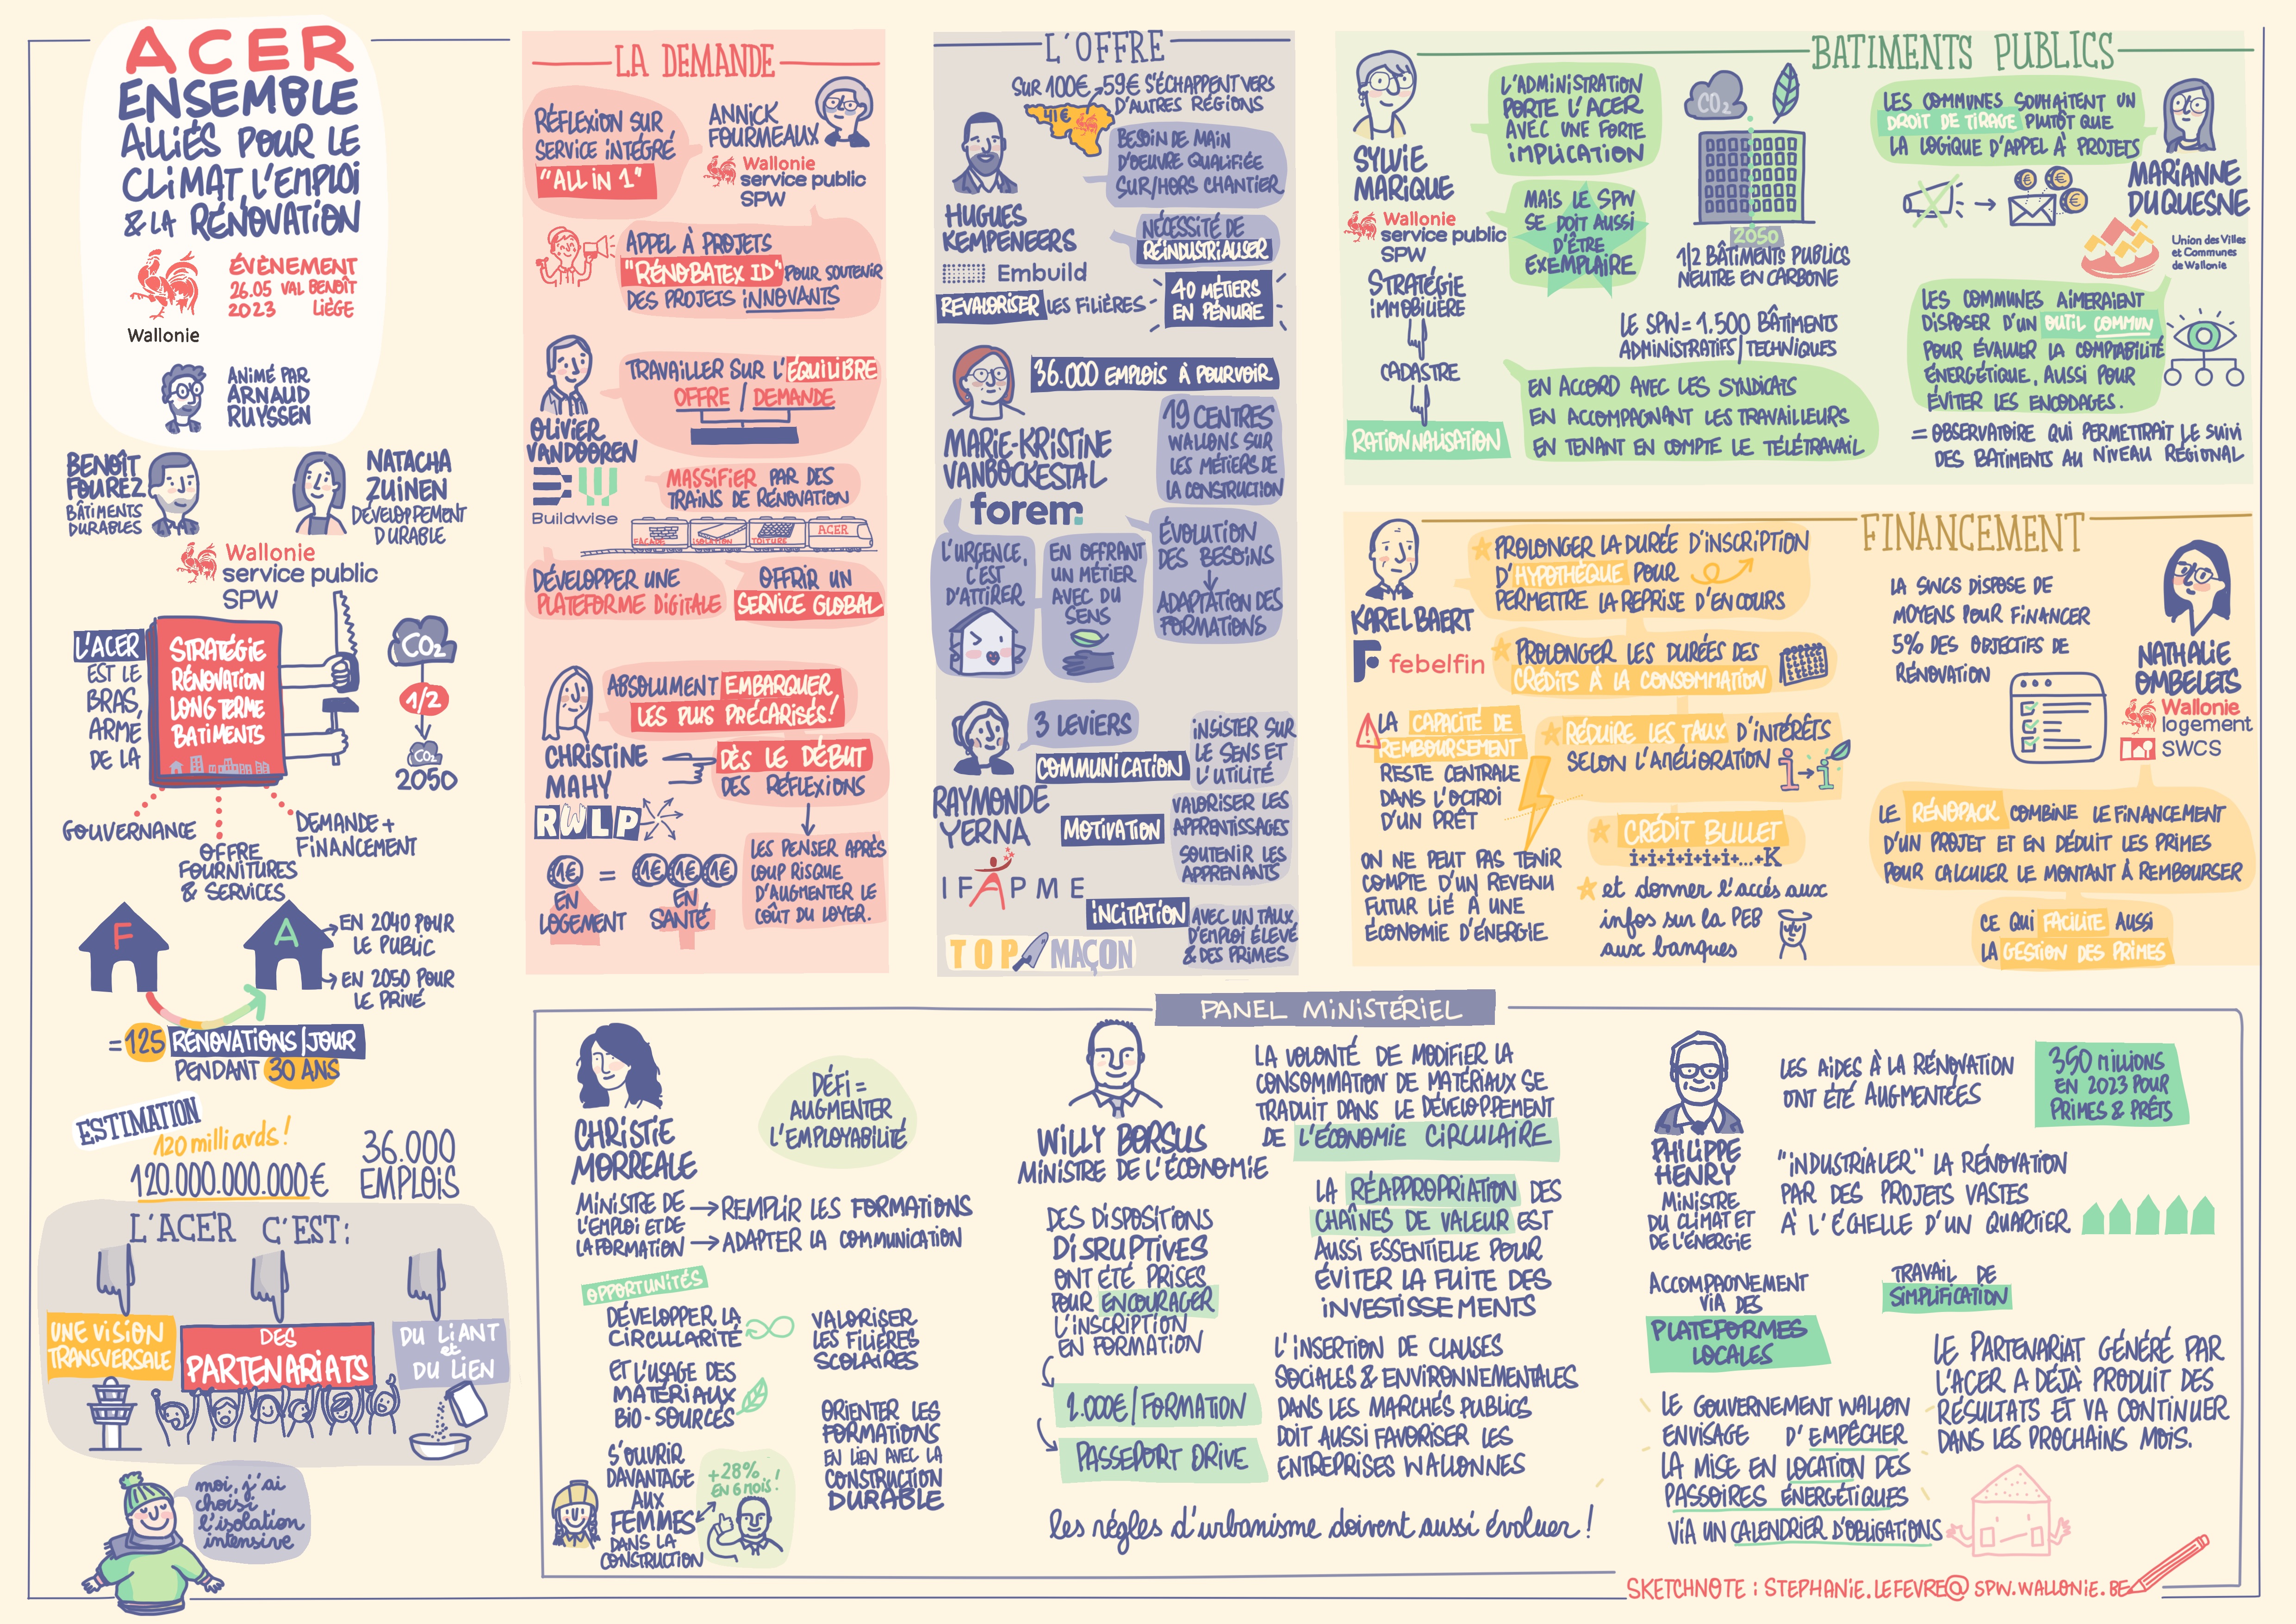 ACER
ENSEMBLE
ALLIÉS POUR LE
CLIMAT, L'EMPLOI
& LA RÉNOVATION
Wallonie
ÉVÈNEMENT
26.05 VAL BENOÎT
2023 LIÈGE
ANIMÉ PAR
ARNAUD
RUYSSEN
BENOÎT
FOUREZ
BÂTIMENTS
DURABLES
NATACHA
ZUINEN
DÉVELOPPEMENT
DURABLE
Wallonie
service public
SPW
L'ACER
EST LE
BRAS,
ARMÉ
DE LA
STRATÉGIE
RÉNOVATION
LONG TERME
BATIMENTS
CO2
1/2
CO2
2050
GOUVERNANCE
OFFRE
FOURNITURES
& SERVICES
DEMANDE +
FINANCEMENT
F
A
EN 2040 POUR
LE PUBLIC
EN 2050 POUR
LE PRIVÉ
= 125 RÉNOVATIONS/JOUR
PENDANT 30 ANS
ESTIMATION
120 milliards !
120.000.000.000€
36.000
EMPLOIS
L'ACER C'EST :
UNE VISION
TRANSVERSALE
DES
PARTENARIATS
DU LIANT
et
DU LIEN
moi, j'ai
choisi
l'isolation
intensive
LA DEMANDE
RÉFLEXION SUR
SERVICE INTÉGRÉ
"ALL IN 1"
ANNICK
FOURMEAUX
Wallonie
service public
SPW
APPEL À PROJETS
"RÉNOBATEX ID" POUR SOUTENIR
DES PROJETS INNOVANTS
OLIVIER
VANDOOREN
Buildwise
TRAVAILLER SUR L'ÉQUILIBRE
OFFRE / DEMANDE
MASSIFIER PAR DES
TRAINS DE RÉNOVATION
FAÇADE
ISOLATION
TOITURE
ACER
DÉVELOPPER UNE
PLATEFORME DIGITALE
OFFRIR UN
SERVICE GLOBAL
CHRISTINE
MAHY
RWLP
ABSOLUMENT EMBARQUER
LES PLUS PRÉCARISÉS!
DÈS LE DÉBUT
DES RÉFLEXIONS
LES PENSER APRÈS
COUP RISQUE
D'AUGMENTER LE
COÛT DU LOYER.
1€ = 1€ 1€ 1€
EN
LOGEMENT
EN
SANTÉ
L'OFFRE
SUR 100€ 59€ S'ÉCHAPPENT VERS
D'AUTRES RÉGIONS
41€
HUGUES
KEMPENEERS
Embuild
BESOIN DE MAIN
D'OEUVRE QUALIFIÉE
SUR/HORS CHANTIER
NÉCESSITÉ DE
RÉINDUSTRIALISER
REVALORISER LES FILIÈRES
40 MÉTIERS
EN PÉNURIE
36.000 EMPLOIS À POURVOIR
MARIE-KRISTINE
VANBOCKESTAL
forem
19 CENTRES
WALLONS SUR
LES MÉTIERS DE
LA CONSTRUCTION
L'URGENCE,
C'EST
D'ATTIRER
EN OFFRANT
UN MÉTIER
AVEC DU
SENS
ÉVOLUTION
DES BESOINS
ADAPTATION DES
FORMATIONS
RAYMONDE
YERNA
IFAPME
3 LEVIERS
COMMUNICATION
INSISTER SUR
LE SENS ET
L'UTILITÉ
MOTIVATION
VALORISER LES
APPRENTISSAGES
SOUTENIR LES
APPRENANTS
INCITATION
AVEC UN TAUX
D'EMPLOI ÉLEVÉ
& DES PRIMES
TOP MAÇON
BATIMENTS PUBLICS
SYLVIE
MARIQUE
Wallonie
service public
SPW
L'ADMINISTRATION
PORTE L'ACER
AVEC UNE FORTE
IMPLICATION
MAIS LE SPW
SE DOIT AUSSI
D'ÊTRE
EXEMPLAIRE
CO2
2050
1/2 BÂTIMENTS PUBLICS
NEUTRE EN CARBONE
STRATÉGIE
IMMOBILIÈRE
CADASTRE
RATIONNALISATION
LE SPW = 1.500 BÂTIMENTS
ADMINISTRATIFS/TECHNIQUES
EN ACCORD AVEC LES SYNDICATS
EN ACCOMPAGNANT LES TRAVAILLEURS
EN TENANT EN COMPTE LE TÉLÉTRAVAIL
LES COMMUNES SOUHAITENT UN
DROIT DE TIRAGE PLUTÔT QUE
LA LOGIQUE D'APPEL À PROJETS
MARIANNE
DUQUESNE
Union des Villes
et Communes
de Wallonie
LES COMMUNES AIMERAIENT
DISPOSER D'UN OUTIL COMMUN
POUR ÉVALUER LA COMPTABILITÉ
ÉNERGÉTIQUE, AUSSI POUR
ÉVITER LES ENCODAGES.
= OBSERVATOIRE QUI PERMETTRAIT LE SUIVI
DES BATIMENTS AU NIVEAU RÉGIONAL
FINANCEMENT
KAREL BAERT
febelfin
PROLONGER LA DURÉE D'INSCRIPTION
D'HYPOTHÈQUE POUR
PERMETTRE LA REPRISE D'ENCOURS
PROLONGER LES DURÉES DES
CRÉDITS À LA CONSOMMATION
RÉDUIRE LES TAUX D'INTÉRÊTS
SELON L'AMÉLIORATION i→i
CRÉDIT BULLET
i+i+i+i+i+i+...+K
et donner l'accés aux
infos sur la PEB
aux banques
LA CAPACITÉ DE
REMBOURSEMENT
RESTE CENTRALE
DANS L'OCTROI
D'UN PRÊT
ON NE PEUT PAS TENIR
COMPTE D'UN REVENU
FUTUR LIÉ À UNE
ÉCONOMIE D'ÉNERGIE
LA SWCS DISPOSE DE
MOYENS POUR FINANCER
5% DES OBJECTIFS DE
RÉNOVATION
NATHALIE
OMBELETS
Wallonie
logement
SWCS
LE RÉNOPACK COMBINE LE FINANCEMENT
D'UN PROJET ET EN DÉDUIT LES PRIMES
POUR CALCULER LE MONTANT À REMBOURSER
CE QUI FACILITE AUSSI
LA GESTION DES PRIMES
PANEL MINISTÉRIEL
CHRISTIE
MORREALE
MINISTRE DE
L'EMPLOI ET DE
LA FORMATION
DÉFI =
AUGMENTER
L'EMPLOYABILITÉ
→ REMPLIR LES FORMATIONS
→ ADAPTER LA COMMUNICATION
OPPORTUNITÉS
DÉVELOPPER LA
CIRCULARITÉ
ET L'USAGE DES
MATÉRIAUX
BIO-SOURCÉS
S'OUVRIR
DAVANTAGE
AUX
FEMMES
DANS LA
CONSTRUCTION
+28%
EN 6 MOIS !
VALORISER
LES FILIÈRES
SCOLAIRES
ORIENTER LES
FORMATIONS
EN LIEN AVEC LA
CONSTRUCTION
DURABLE
WILLY BORSUS
MINISTRE DE L'ÉCONOMIE
DES DISPOSITIONS
DISRUPTIVES
ONT ÉTÉ PRISES
POUR ENCOURAGER
L'INSCRIPTION
EN FORMATION
2.000€/FORMATION
PASSEPORT DRIVE
LA VOLONTÉ DE MODIFIER LA
CONSOMMATION DE MATÉRIAUX SE
TRADUIT DANS LE DÉVELOPPEMENT
DE L'ÉCONOMIE CIRCULAIRE
LA RÉAPPROPRIATION DES
CHAÎNES DE VALEUR EST
AUSSI ESSENTIELLE POUR
ÉVITER LA FUITE DES
INVESTISSEMENTS
L'INSERTION DE CLAUSES
SOCIALES & ENVIRONNEMENTALES
DANS LES MARCHÉS PUBLICS
DOIT AUSSI FAVORISER LES
ENTREPRISES WALLONNES
les régles d'urbanisme doivent aussi évoluer !
PHILIPPE
HENRY
MINISTRE
DU CLIMAT ET
DE L'ÉNERGIE
LES AIDES À LA RÉNOVATION
ONT ÉTÉ AUGMENTÉES
350 MILLIONS
EN 2023 POUR
PRIMES & PRÊTS
"INDUSTRIALER" LA RÉNOVATION
PAR DES PROJETS VASTES
À L'ÉCHELLE D'UN QUARTIER
ACCOMPAGNEMENT
VIA DES
PLATEFORMES
LOCALES
TRAVAIL DE
SIMPLIFICATION
LE GOUVERNEMENT WALLON
ENVISAGE D'EMPÊCHER
LA MISE EN LOCATION DES
PASSOIRES ÉNERGÉTIQUES
VIA UN CALENDRIER D'OBLIGATIONS
LE PARTENARIAT GÉNÉRÉ PAR
L'ACER A DÉJÀ PRODUIT DES
RÉSULTATS ET VA CONTINUER
DANS LES PROCHAINS MOIS.
SKETCHNOTE : STEPHANIE.LEFEVRE@SPW.WALLONIE.BE